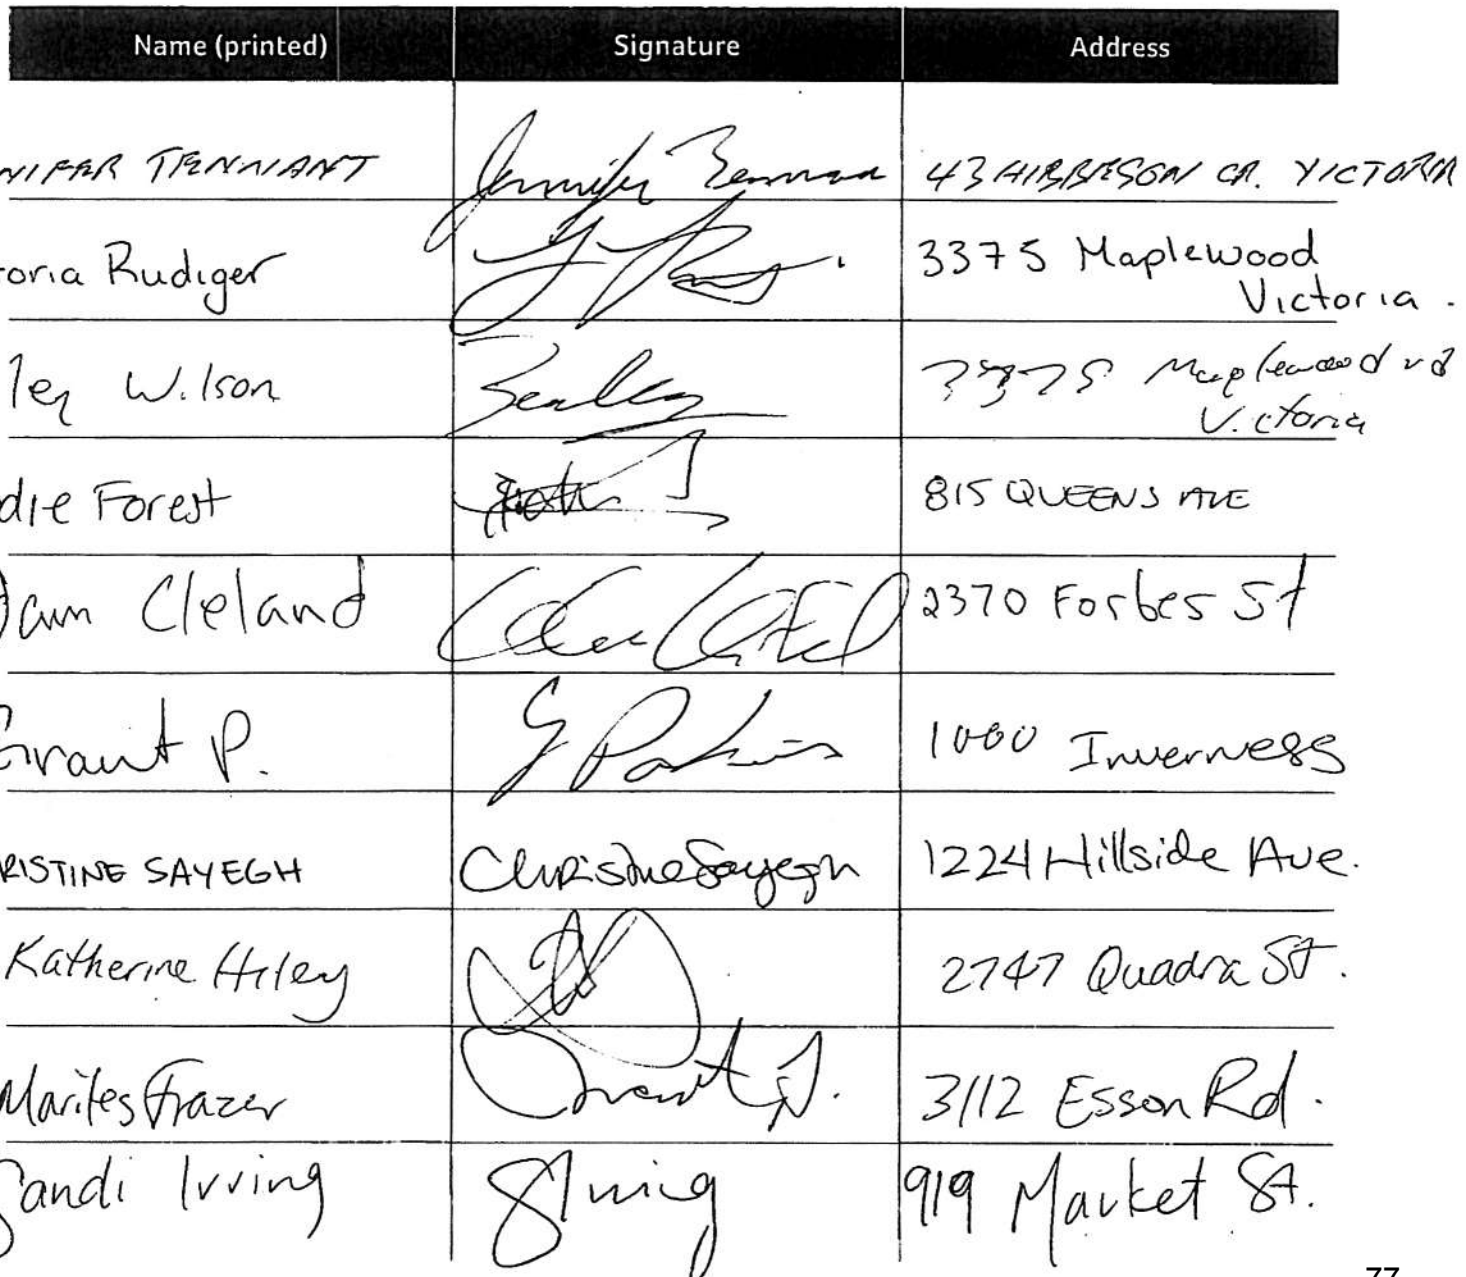 Name (printed) Signature Address
NIFER TENNANT Jennifer Tennant 43 HIBBERSON CR. VICTORIA
oria Rudiger 3375 Maplewood
Victoria.
ley Wilson 3375 Maplewood rd
Victoria
die Forest 815 QUEENS AVE
dam Cleland 2370 Forbes St
Grant P. G Parkins 1000 Inverness
RISTINE SAYEGH Christine Sayegh 1224 Hillside Ave.
Katherine Hiley 2747 Quadra St.
Marites Frazer 3112 Esson Rd.
Sandi Irving SIrving 919 Market St.
77